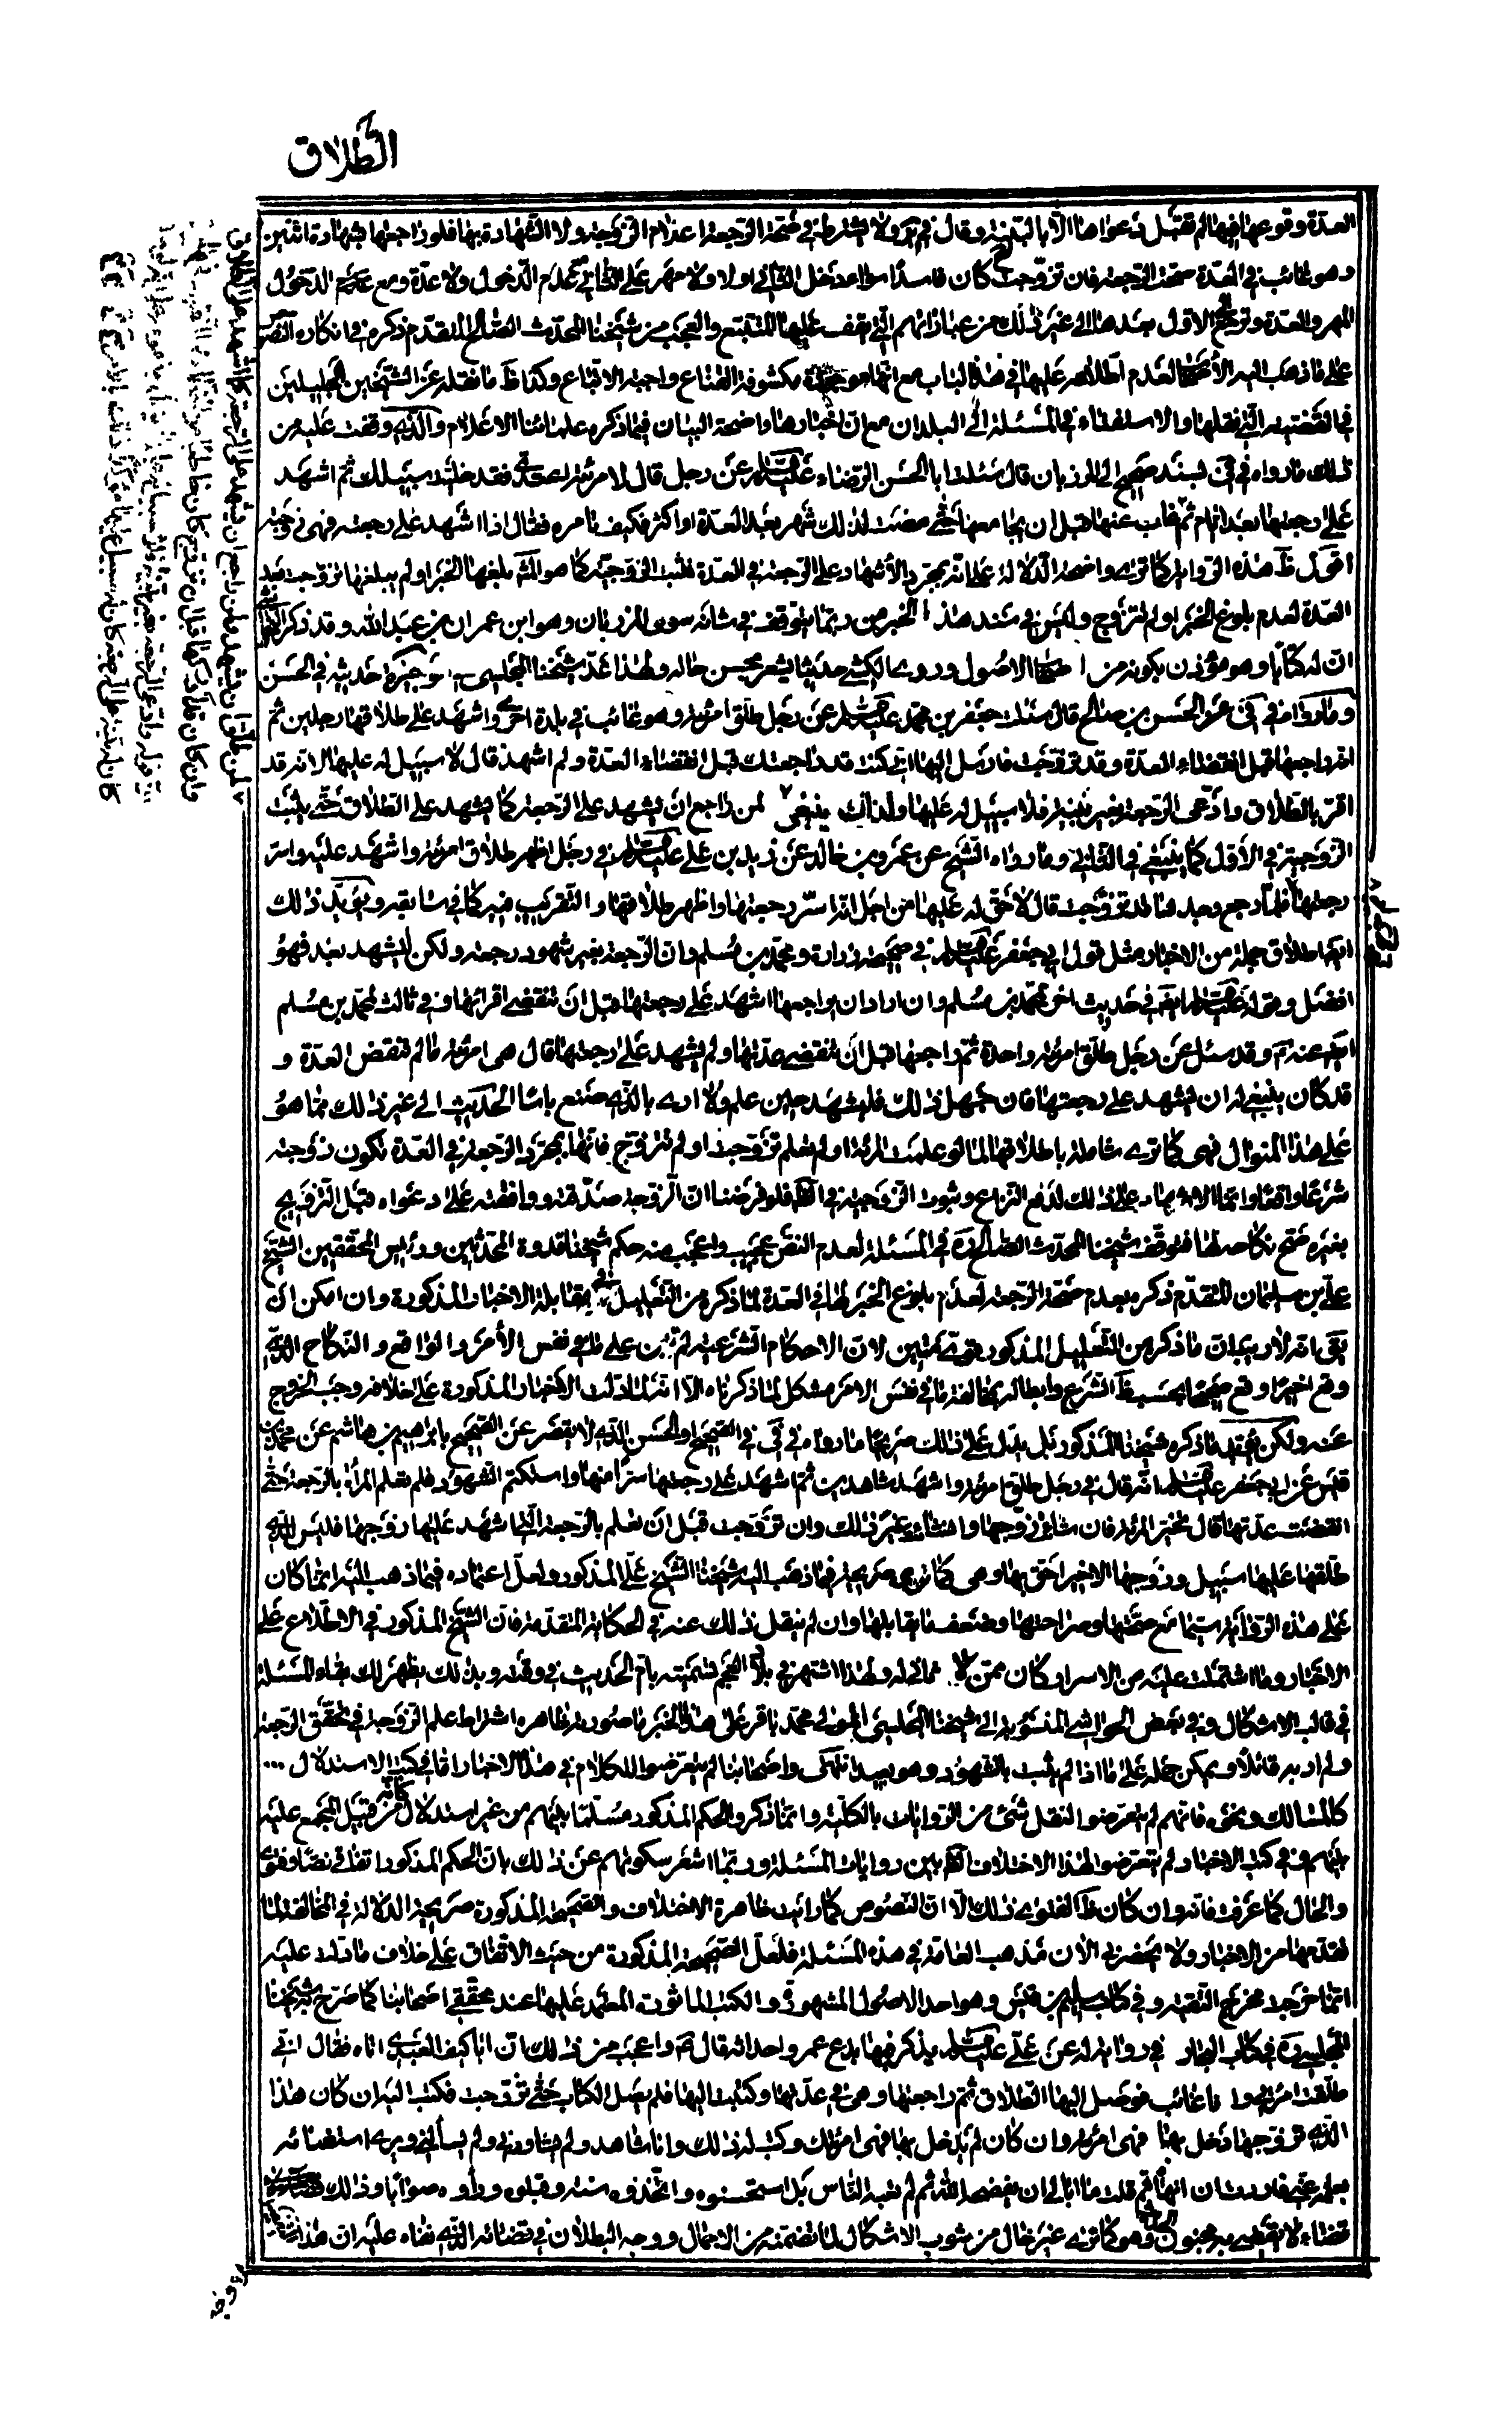 الطلاق
العدة وقوعها فيها لم تقبل دعواها الا بالبينة وقال في ولا يشترط في صحة الرجعة اعلام الزوجة ولا الشهادة بها فلو راجعها بشهادة اثنين
وهو غائب في العدة صحت الرجعة فان تزوجت كان فاسدا سواء دخل الثاني اولا ولا مهر على الثاني مع عدم الدخول ولا عدة ومع الدخول
المهر والعدة وترجع الى الاول بعدها الى غير ذلك من عباراتهم التي يقف عليها المتتبع والعجب من شيخنا المحدث الصالح المتقدم ذكره في انكاره النص
على ما ذهب اليه الاصحاب لعدم اطلاعه عليها في هذا الباب مع انها مكشوفة القناع واجبة الاتباع وكذا ظ ما نقله عن الشيخين الجليلين
في القضية التي نقلها والاستفتاء في المسئلة الى البلدان مع ان اخبارها واضحة البيان فيما ذكره علمائنا الاعلام والذي وقفت عليه من
ذلك ما رواه في في بسند صحيح الى المرزبان قال سئلت ابا الحسن الرضاء عليه السلام عن رجل قال لامرئته اعتدي فقد خليت سبيلك ثم اشهد
على رجعتها بعد ايام ثم غاب عنها قبل ان يجامعها حتى مضت لذلك شهر بعد العدة او اكثر فكيف تامره فقال اذا اشهد على رجعته فهي زوجته
اقول ظ هذه الرواية كما ترى واضحة الدلالة على انه بمجرد الاشهاد على الرجعة في العدة تثبت الزوجية كما هو المشهور بلغها الخبر او لم يبلغها تزوجت بعد
العدة لعدم بلوغ الخبر او لم تتزوج وليس في سند هذا الخبر من ربما يتوقف في شانه سوى المرزبان وهو ابن عمران بن عبد الله وقد ذكر النجاشي
ان له كتابا وهو مؤذن بكونه من اصحاب الاصول وروى الكشي حديثا يشعر بحسن حاله ولهذا عد شيخنا المجلسي في وجيزته حديثه في الحسن
وما رواه في في عن الحسن بن صالح قال سئلت جعفر بن محمد عليه السلام عن رجل طلق امرئته وهو غائب في بلدة اخرى واشهد على طلاقها رجلين ثم
انه راجعها قبل انقضاء العدة وقد تزوجت فارسل اليها اني كنت قد راجعتك قبل انقضاء العدة ولم اشهد قال لا سبيل له عليها لانه قد
اقر بالطلاق وادعى الرجعة بغير بينة فلا سبيل له عليها ولذلك ينبغي لمن راجع ان يشهد على الرجعة كما يشهد على الطلاق حتى يثبت
الزوجية في الاول كما ينبغي في الثاني وما رواه الشيخ عن عمرو بن خالد عن زيد بن علي عن علي عليه السلام في رجل اظهر طلاق امرئته واشهد عليه واسر
رجعتها فلما رجع وجدها قد تزوجت قال لا حق له عليها من اجل انه اسر رجعتها واظهر طلاقها والتقريب فيه كما في سابقه ويؤيد ذلك
ايضا اطلاق جملة من الاخبار مثل قول ابي جعفر عليه السلام في صحيحة زرارة ومحمد بن مسلم وان الرجعة بغير شهود رجعة ولكن ليشهد بعد فهو
افضل وقوله عليه السلام ايضا في حديث اخر لمحمد بن مسلم وان اراد ان يراجعها اشهد على رجعتها قبل ان تنقضي اقرائها وفي ثالث لمحمد بن مسلم
ايضا عنه ع وقد سئل عن رجل طلق امرئته واحدة ثم راجعها قبل ان تنقضي عدتها ولم يشهد على رجعتها قال هي امرئته ما لم تنقض العدة و
قد كان ينبغي له ان يشهد على رجعتها فان جهل ذلك فليشهد حين علم ولا ارى بالذي صنع باسا الحديث الى غير ذلك مما هو
على هذا المنوال فهي كما ترى شاملة باطلاقها لما لو علمت المرئة او لم تعلم تزوجت او لم تتزوج فانها بمجرد الرجعة في العدة تكون زوجته
شرعا واقعا وانما الاشهاد على ذلك لدفع النزاع وثبوت الزوجية في الظاهر فلو فرضنا ان الزوجة صدقته ووافقته على دعواه قبل التزويج
بغيره صح نكاحه لها فتوقف شيخنا المحدث الصالح ره في المسئلة لعدم النص عجيب واعجب منه حكم شيخنا قدوة المحدثين ورئيس المحققين الشيخ
علي بن سليمان المتقدم ذكره بعدم صحة الرجعة لعدم بلوغ الخبر لها في العدة لما ذكره من التعليل في مقابلة الاخبار المذكورة وان امكن ان
بقى انه لا ريب ان ما ذكره من التعليل المذكور قوي متين لان الاحكام الشرعية لم تبن على ما في نفس الأمر والواقع والنكاح الذي
وقع اخيرا وقع صحيحا بحسب ظ الشرع وابطاله بمخالفة ما في نفس الامر مشكل لما ذكرناه الا انه لما دلت الاخبار المذكورة على خلافه وجب الخروج
عنه ولكن يؤيد ما ذكره شيخنا المذكور بل يدل على ذلك صريحا ما رواه في في في الصحيح او الحسن الذي لا يقصر عن الصحيح بابراهيم بن هاشم عن محمد بن
قيس عن ابي جعفر عليه السلام انه قال في رجل طلق امرئته واشهد شاهدين ثم اشهد على رجعتها سرا منها واستكتم الشهود فلم تعلم المرأة بالرجعة حتى
انقضت عدتها قال تخير المرئة فان شائت زوجها وان شائت غير ذلك وان تزوجت قبل ان تعلم بالرجعة التي اشهد عليها زوجها فليس للذي
طلقها عليها سبيل وزوجها الاخير احق بها وهي كما ترى صريحة فيما ذهب اليه شيخنا الشيخ علي المذكور ولعل اعتماده فيما ذهب اليه انما كان
على هذه الرواية سيما مع صحتها وصراحتها وضعف ما يقابلها وان لم ينقل ذلك عنه في الحكاية المتقدمة فان الشيخ المذكور في الاطلاع على
الاخبار وما اشتملت عليه من الاسرار كان ممن لا ثاني له ولهذا اشتهر في بلاد العجم تسميته بام الحديث في وقته وبذلك يظهر لك بقاء المسئلة
في قالب الاشكال وفي بعض الحواشي المنسوبة الى شيخنا المجلسي المولى محمد باقر على هذا الخبر ما صورته ظاهره اشتراط علم الزوجة في تحقق الرجعة
ولم ار به قائلا ويمكن حمله على ما اذا لم يثبت بالشهود وهو بعيد انتهى واصحابنا لم يتعرضوا للكلام في هذا الاخبار اما في كتب الاستدلال ...
كالمسالك ونحوه فانهم لم يتعرضوا لنقل شئ من الروايات بالكلية وانما ذكروا الحكم المذكور مسلما بينهم من غير استدلال كانه من قبيل المجمع عليه
بينهم وفي كتب الاخبار لم يتعرضوا لهذا الاختلاف الظاهر بين روايات المسئلة وربما اشعر سكوتهم عن ذلك بان الحكم المذكور اتفاقي نصا وفتوى
والحال كما عرفت فانه وان كان ظ الفتوى ذلك الا ان النصوص كما رايت ظاهرة الاختلاف والصحيحة المذكورة صريحة الدلالة في المخالفة لما
تقدمها من الاخبار ولا يحضرني الان مذهب العامة في هذه المسئلة فلعل الصحيحة المذكورة من حيث الاتفاق على خلاف ما دلت عليه
انما خرجت مخرج التقية وفي كتاب سليم بن قيس وهو احد الاصول المشهورة والكتب الماثورة المعتمد عليها عند محققي اصحابنا كما صرح به شيخنا
المجلسي ره في كتاب البحار في رواية له عن علي عليه السلام يذكر فيها بدع عمر واحداثه قال ع واعجب من ذلك ان ابا كنف العبدي اتاه فقال اني
طلقت امرئتي وانا غائب فوصل اليها الطلاق ثم راجعتها وهي في عدتها وكتبت اليها فلم يصل الكتاب حتى تزوجت فكتب اليه ان كان هذا
الذي تزوجها دخل بها فهي امرئته وان كان لم يدخل بها فهي امرئتك وكتب له ذلك وانا شاهد ولم يشاورني ولم يسألني ويرى استغنائه
بعلمه عني فاردت ان انهاه ثم قلت ما ابالي ان يفضحه الله ثم لم تعبه الناس بل استحسنوه واتخذوه سنة وقبلوه وراوه صوابا وذلك
قضاء لا يقضي به مجنون وهو كما ترى غير خال من شوب الاشكال لما تضمنه من الاجمال ووجه البطلان في قضائه الذي نعاه عليه ان هذا